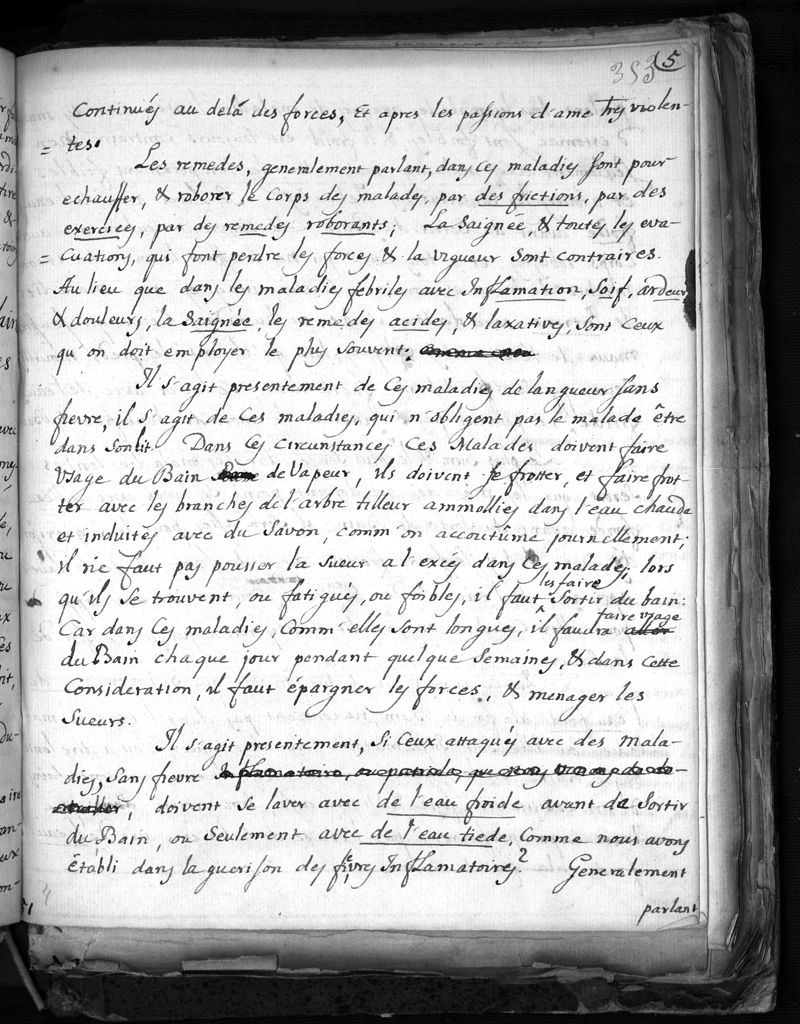 353 (5
Continués au delà des forces, Et apres les passions d'ame Tres violen-
= tes.
Les remedes, generalement parlant, dans ces maladies sont pour
echauffer, & roborer le Corps des malades, par des frictions, par des
exercices, par des remedes roborants; La Saignée, & toutes les eva-
= cuations, qui font perdre les forces & la vigueur Sont contraires.
Au lieu que dans les maladies febriles avec Inflamation, Soif, ardeur
& douleurs, la Saignée, les remedes acides, & laxatives, Sont Ceux
qu'on doit employer le plus souvent.
Il s'agit presentement de Ces maladies de langueur sans
fievre, il s'agit de Ces maladies, qui n'obligent pas le malade être
dans son lit. Dans Ces circunstances Ces Malades doivent faire
Usage du Bain de Vapeur, ils doivent se frotter, et faire frot-
ter avec les branches de l'arbre tilleur ammollies dans l'eau chaude
et induites avec du Savon, comm'on accoutûme journellement;
il ne faut pas pousser la sueur a l'excés dans Ces malades, lors
qu'ils Se trouvent, ou fatigués, ou foibles, il faut les faire Sortir du bain:
Car dans Ces maladies, Comm'elles sont longues, il faudra faire usage
du Bain chaque jour pendant quelque Semaines, & dans Cette
Consideration, il faut épargner les forces, & menager les
Sueurs.
Il s'agit presentement, Si Ceux attaqués avec des mala-
dies, Sans fievre
doivent Se laver avec de l'eau froide avant de Sortir
du Bain, ou Seulement avec de l'eau tiede, Comme nous avons
établi dans la guerison des fievres Inflamatoires? Generalement
parlant